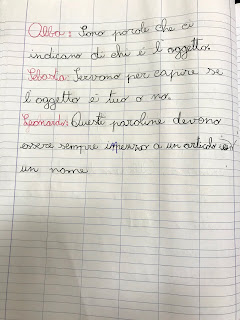 Alba: Sono parole che ci
indicano di chi è l oggetto.
Sebasta: Servono per capire se
l oggetto è tuo o no.
Leonardo: Queste paroline devono
essere sempre in mezzo a un articolo e
un nome